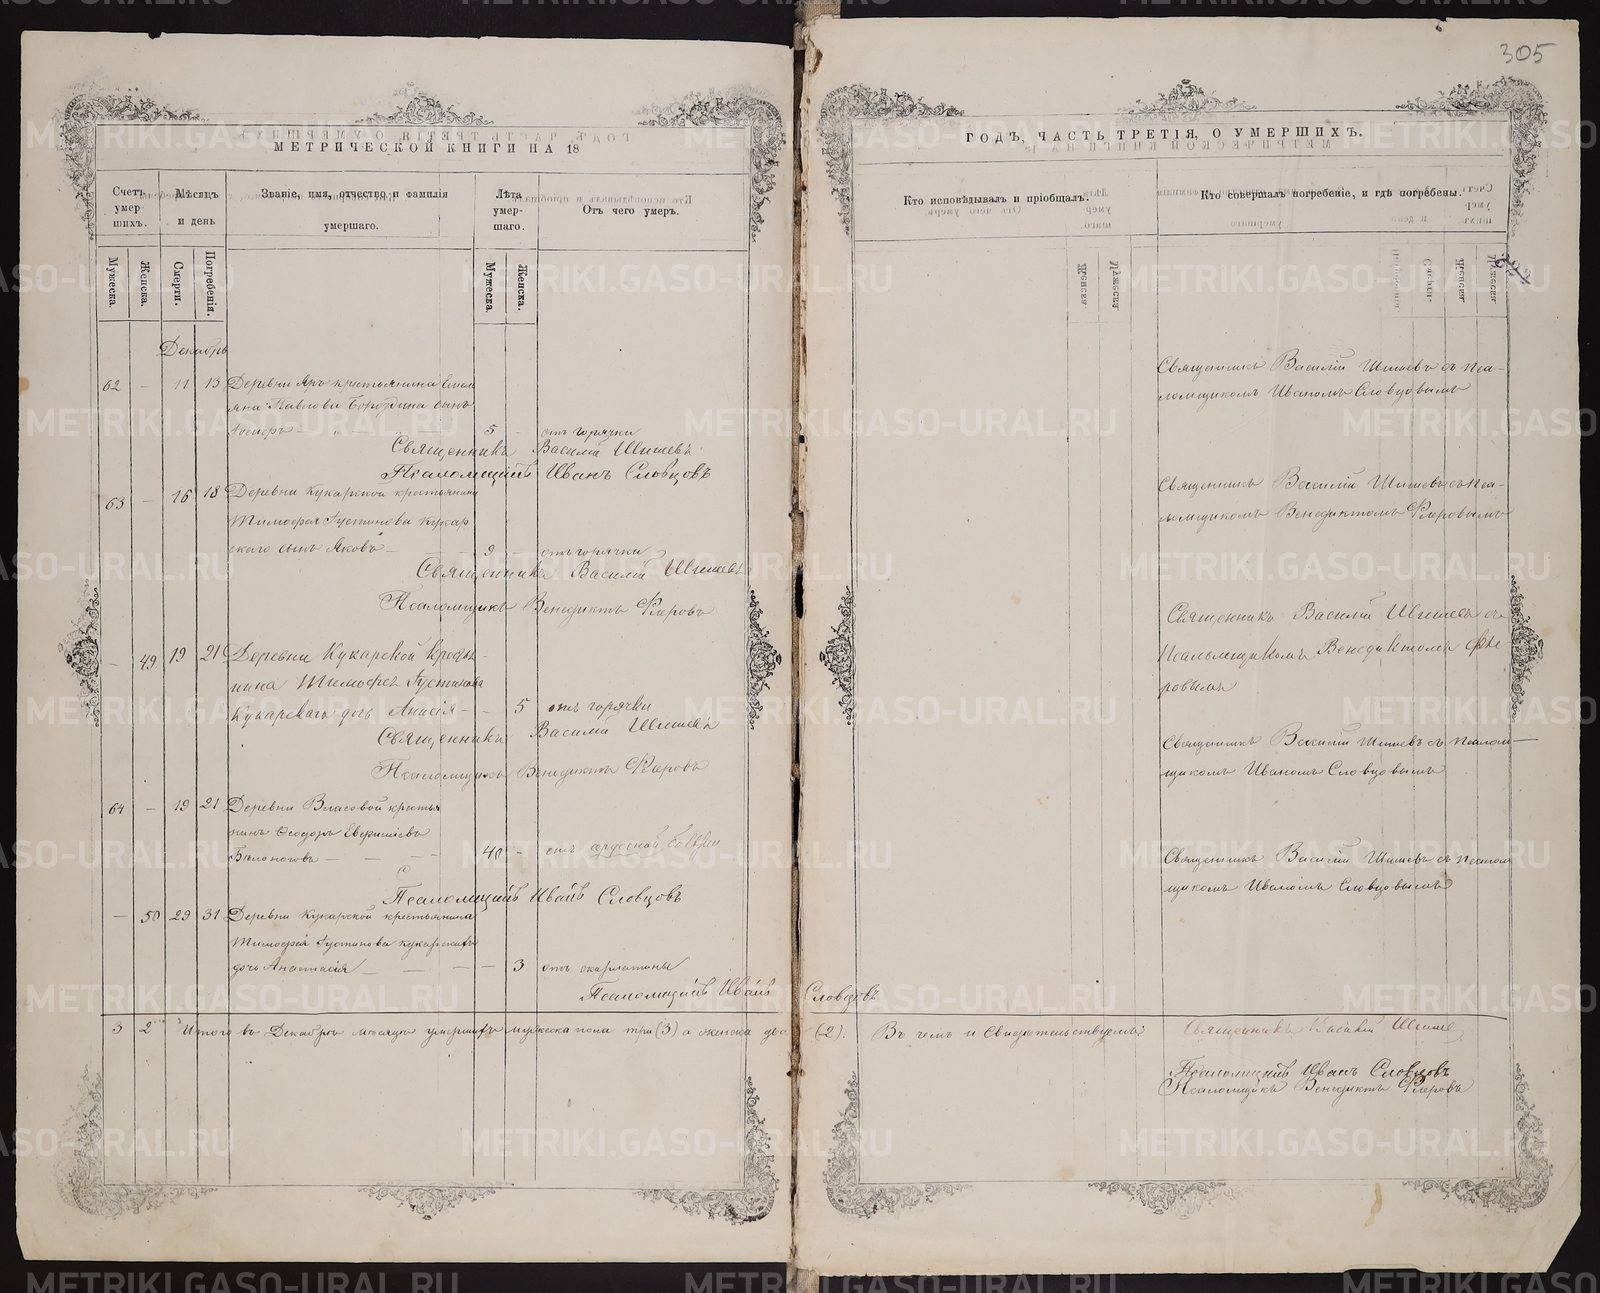 305
МЕТРИЧЕСКОЙ КНИГИ НА 18
Счетъ умер- шихъ.
Мѣсяцъ и день
Званіе, имя, отчество и фамилія умершаго.
Лѣта умер- шаго.
Отъ чего умеръ.
Мужеска.
Женска.
Смерти.
Погребенія.
Мужеска.
Женска.
Декабрь
62 - 11 13 Деревни Яръ крестьянина Емел
яна Павлова Бородина сынъ
5 - отъ горячки
Священникъ Василій Шишевъ
Псаломщикъ Иванъ Словцовъ
63 - 16 18 Деревни Кукарской крестьянина
Тимофея Густинова Кукар
скаго сынъ Яковъ - 9 - отъ горячки
Священникъ Василій Шишевъ
Псаломщикъ Венедиктъ Флеровъ
- 49 19 21 Деревни Кукарской Кресть-
нина Тимофея Густинова
Кукарскаго дочь Анисія - - 5 отъ горячки
Священникъ Василій Шишевъ
Псаломщикъ Венедиктъ Флеровъ
64 - 19 21 Деревни Власовой крестья
нинъ Ѳеодоръ
Бѣлоноговъ - - - 40 - отъ
Псаломщикъ Иванъ Словцовъ
- 50 29 31 Деревни Кукарской крестьянина
Тимофея Густинова Кукарскаго
дочь Анастасія - - - - 3 отъ скарлатины
Псаломщикъ Иванъ Словцовъ
3 2 Итого въ Декабрѣ мѣсяцѣ умершихъ мужеска пола три (3) а женска два (2). Въ чемъ и свидѣтельствуемъ:
ГОДЪ, ЧАСТЬ ТРЕТІЯ, О УМЕРШИХЪ.
Кто исповѣдывалъ и пріобщалъ.
Кто совершалъ погребеніе, и гдѣ погребены.
Священникъ Василій Шишевъ съ Пса-
ломщикомъ Иваномъ Словцовымъ
Священникъ Василій Шишевъ съ Пса-
ломщикомъ Венедиктомъ Флеровымъ
Священникъ Василій Шишевъ съ
Псаломщикомъ Венедиктомъ Фле
ровымъ
Священникъ Василій Шишевъ съ Псалом-
щикомъ Иваномъ Словцовымъ
Священникъ Василій Шишевъ съ Псалом
щикомъ Иваномъ Словцовымъ
Священникъ Василій Шишев
Псаломщикъ Иванъ Словцовъ
Псаломщикъ Венедиктъ Флеровъ
METRIKI.GASO-URAL.RU